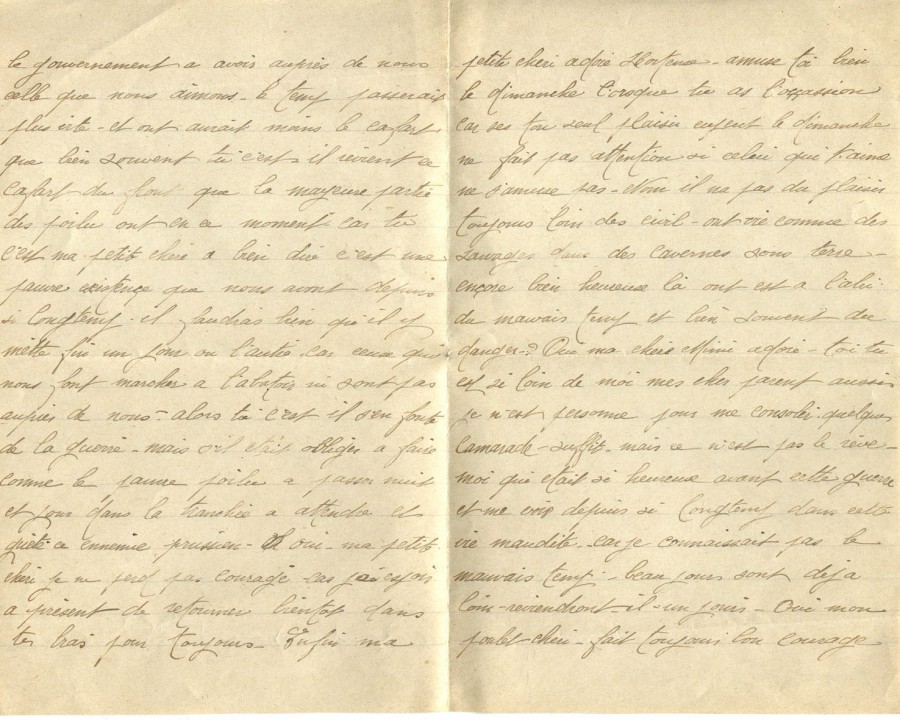 le gouvernement a avoir auprès de nous
celle que nous aimons - le temp passerais
plus vite - et ont aurait moins le cafart
que bien souvent tu c'est - il revient ce
cafart du front que la mayeure partie
des poilu ont en ce moment car tu
c'est ma petite chérie a bien dire c'est une
pauvre existence que nous avont depuis
si longtemp. il faudrais bien qu'il y
mette fin un jour ou l'autre car ceux qui
nous font marcher a l'abatoir ni sont pas
auprès de nous - alors tu c'est il s'en foute
de la guerre - mais s'il était obliger a faire
comme le pauvre poilu a passer nuit
et jour dans la tranchée a attendre et
ce ennemie prussien - Oh oui - ma petite
chéri je ne perd pas courage car j'ai espoir
a présent de retourner bientôt dans
tes bras pour toujours - Enfin ma
petite chéri adorée Hortense - amuse toi bien
le dimanche lorsque tu as l'occassion
car ses ton seul plaisir le dimanche
ne fait pas attention si celui qui t'aime
ne s'amuse pas - Non il na pas du plaisir
toujours loin des civil - ont vie comme des
sauvages dans des cavernes sous terre -
encore bien heureuse là ont est a l'abri
du mauvais temp et bien souvent du
danger - Que ma chère Mimi adorée - toi tu
est si loin de moi mes cher parent aussi
je n'est personne pour me consoler. quelques
camarade - suffit - mais ce n'est pas le rêve -
moi que était si heureuse avant cette guerre
et me voir depuis si longtemp dans cette
vie maudite. car je connaissait pas le
mauvais temp - beau jours sont deja
loin - reviendront-il - un jour - Oui mon
poulet chéri - fait toujours bon courage